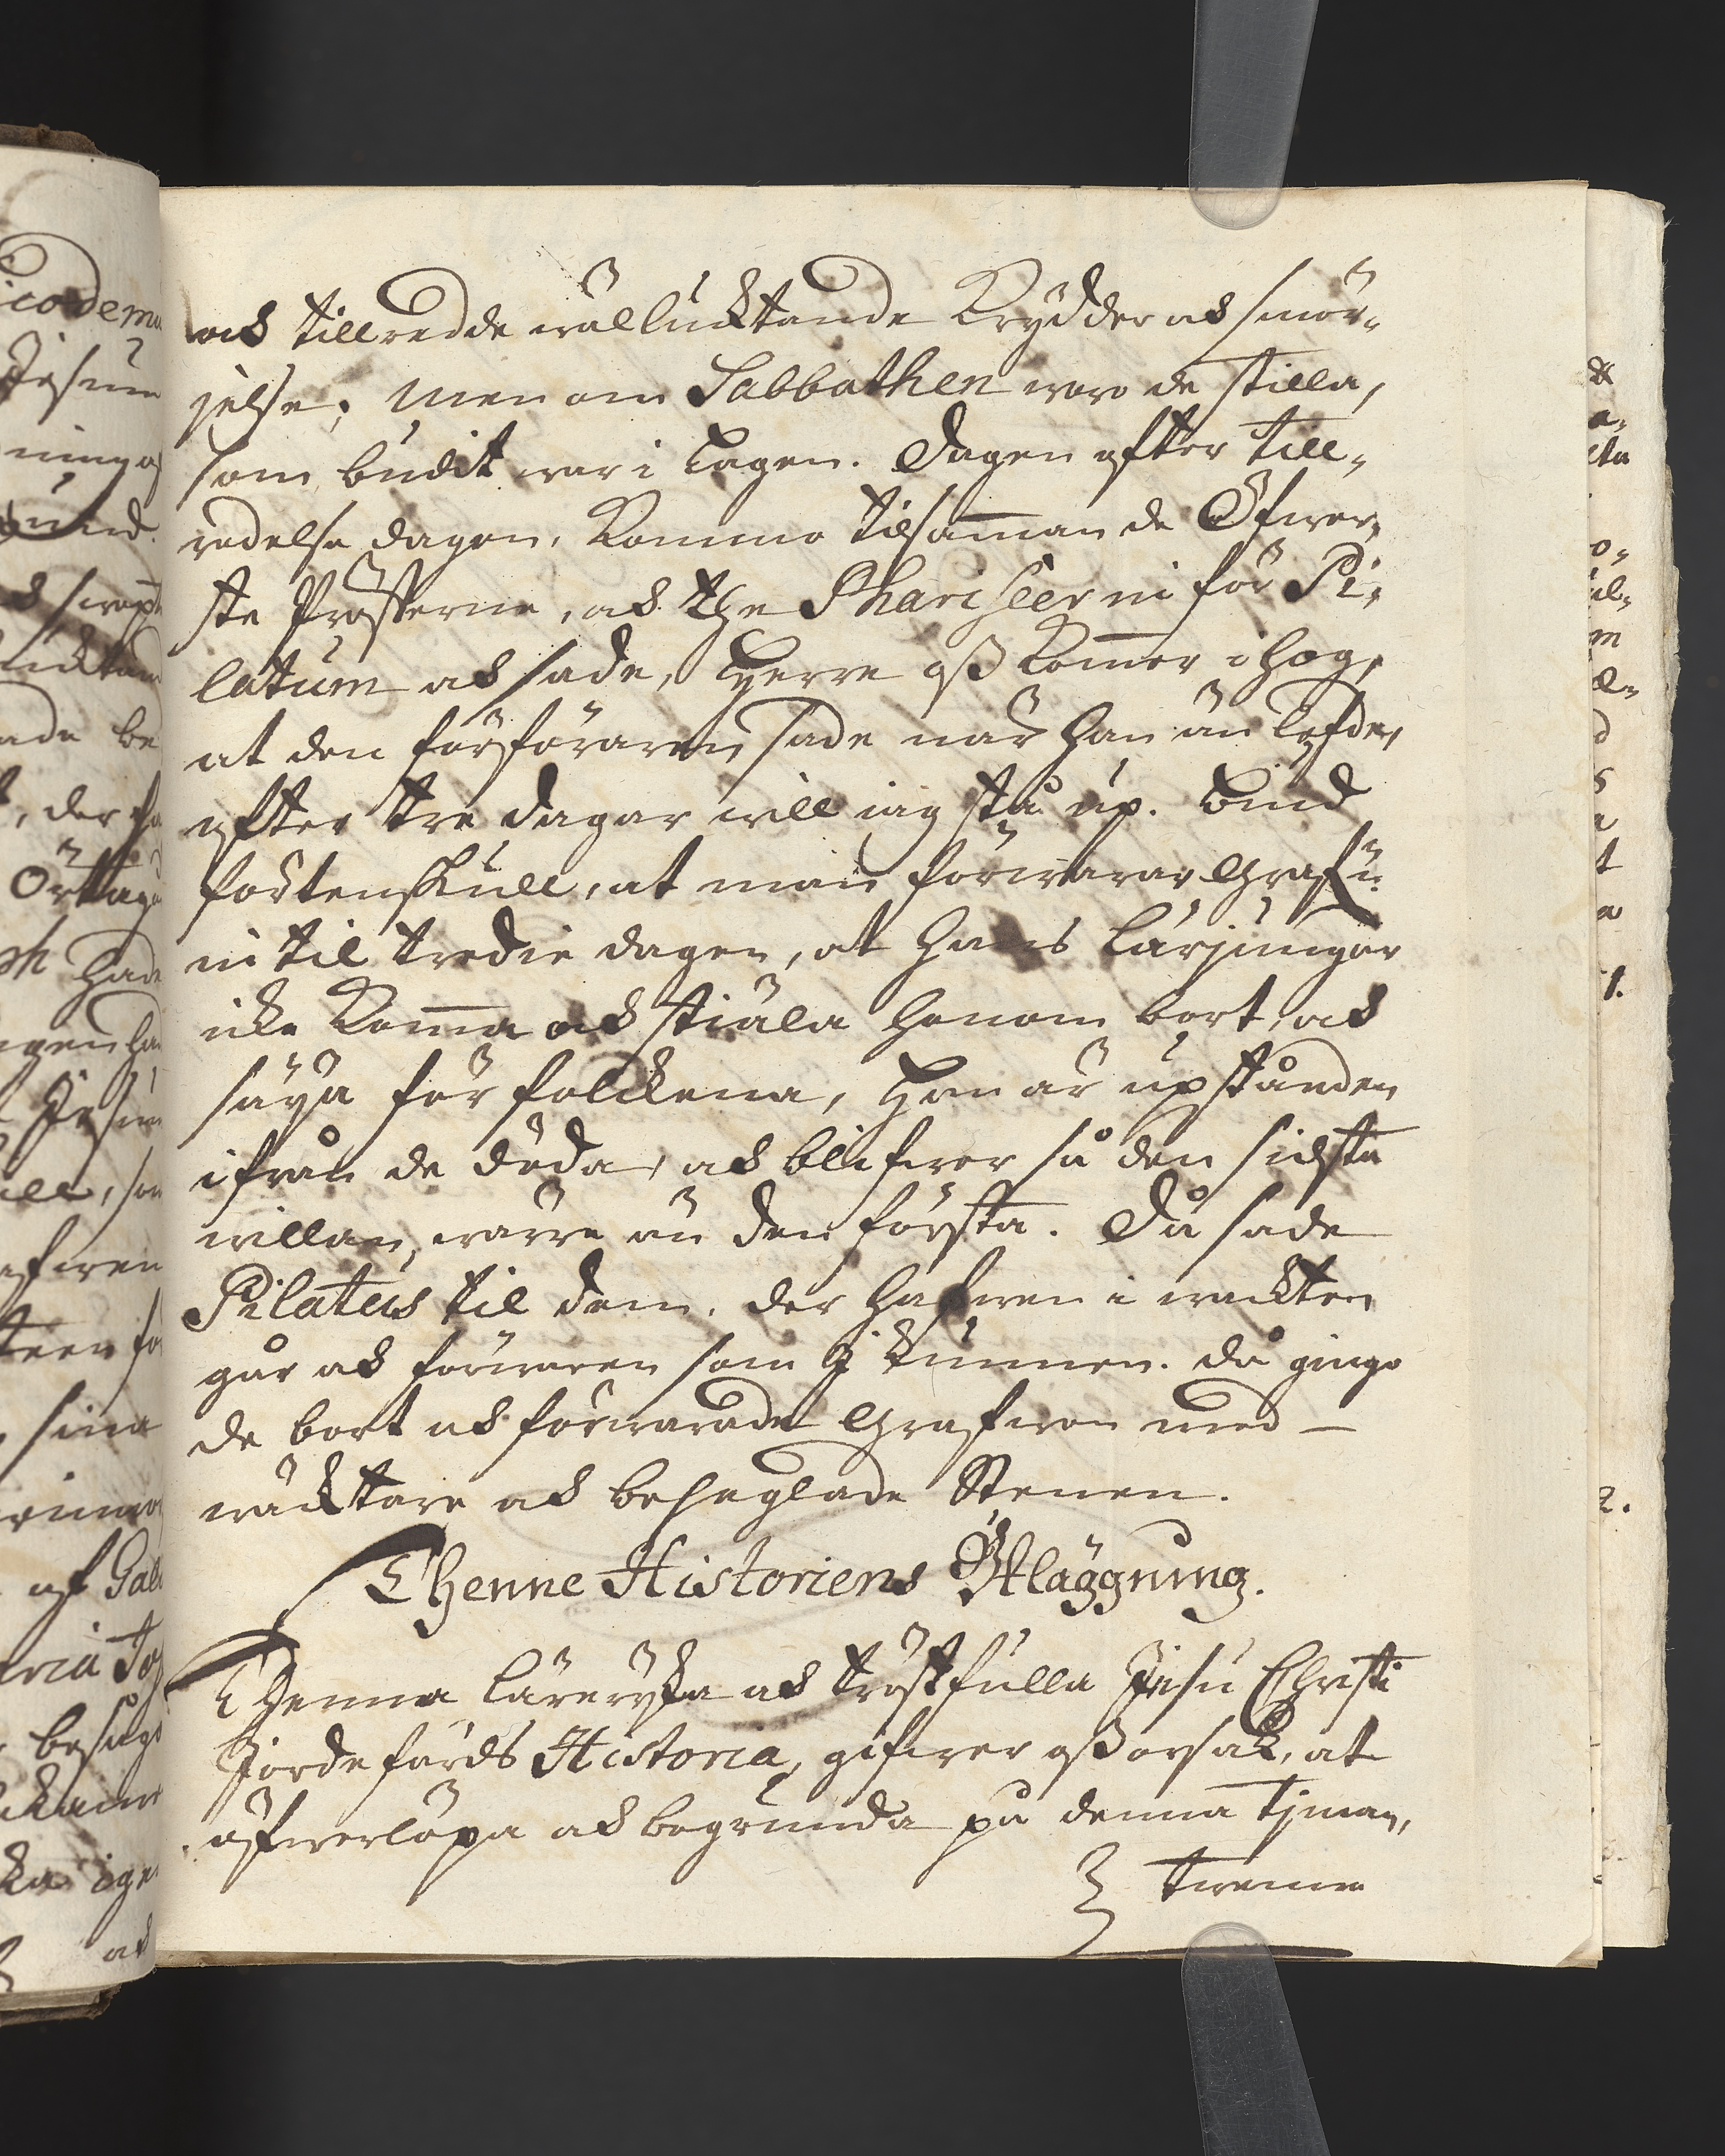 ock tillredde wälluchtande Krydder ock smör-
jelse; men om Sabbathen woro de stilla,
som budit war i Lagen. Dagen efter till-
redelse dagen, Kommo tilsam̄man de Öfwer-
ste Presterne, ock the Phariseerni för Pi-
latum ock sade, Herre oß kom̄er i hog,
at den förföraren sade när han än lefde,
efter tre dagar will iag stå up. Biud
fördenskull, at man förwarar Grafue-
ni til tredie dagen, at hans Lärjungar
icke kom̄a ock stiäla honom bort, ock
säya för folckena, Han är upstånden
ifrån de döda, ock blifwer så den sidsta
willan, wärre än den första. Då sade
Pilatus til dem, der hafwen i wackten
går ock förwaren som J kunnen. då gingo
de bort ock förwarade Grafwen med
wäcktare ock beseglade Stenen.
Thenne Historiens Utläggning.
Thenna Lärerijka ock tröstfulla Jesu Christi
Jordefärds Historia, gifwer oß orsak, at
öfwerlöpa ock begrunda på denna Tjman,
twenne
icodemu
Jesum
der
Örtag
hade
Jesum
sina
af Gali
aria
besågo
igen
ock
1.
2.